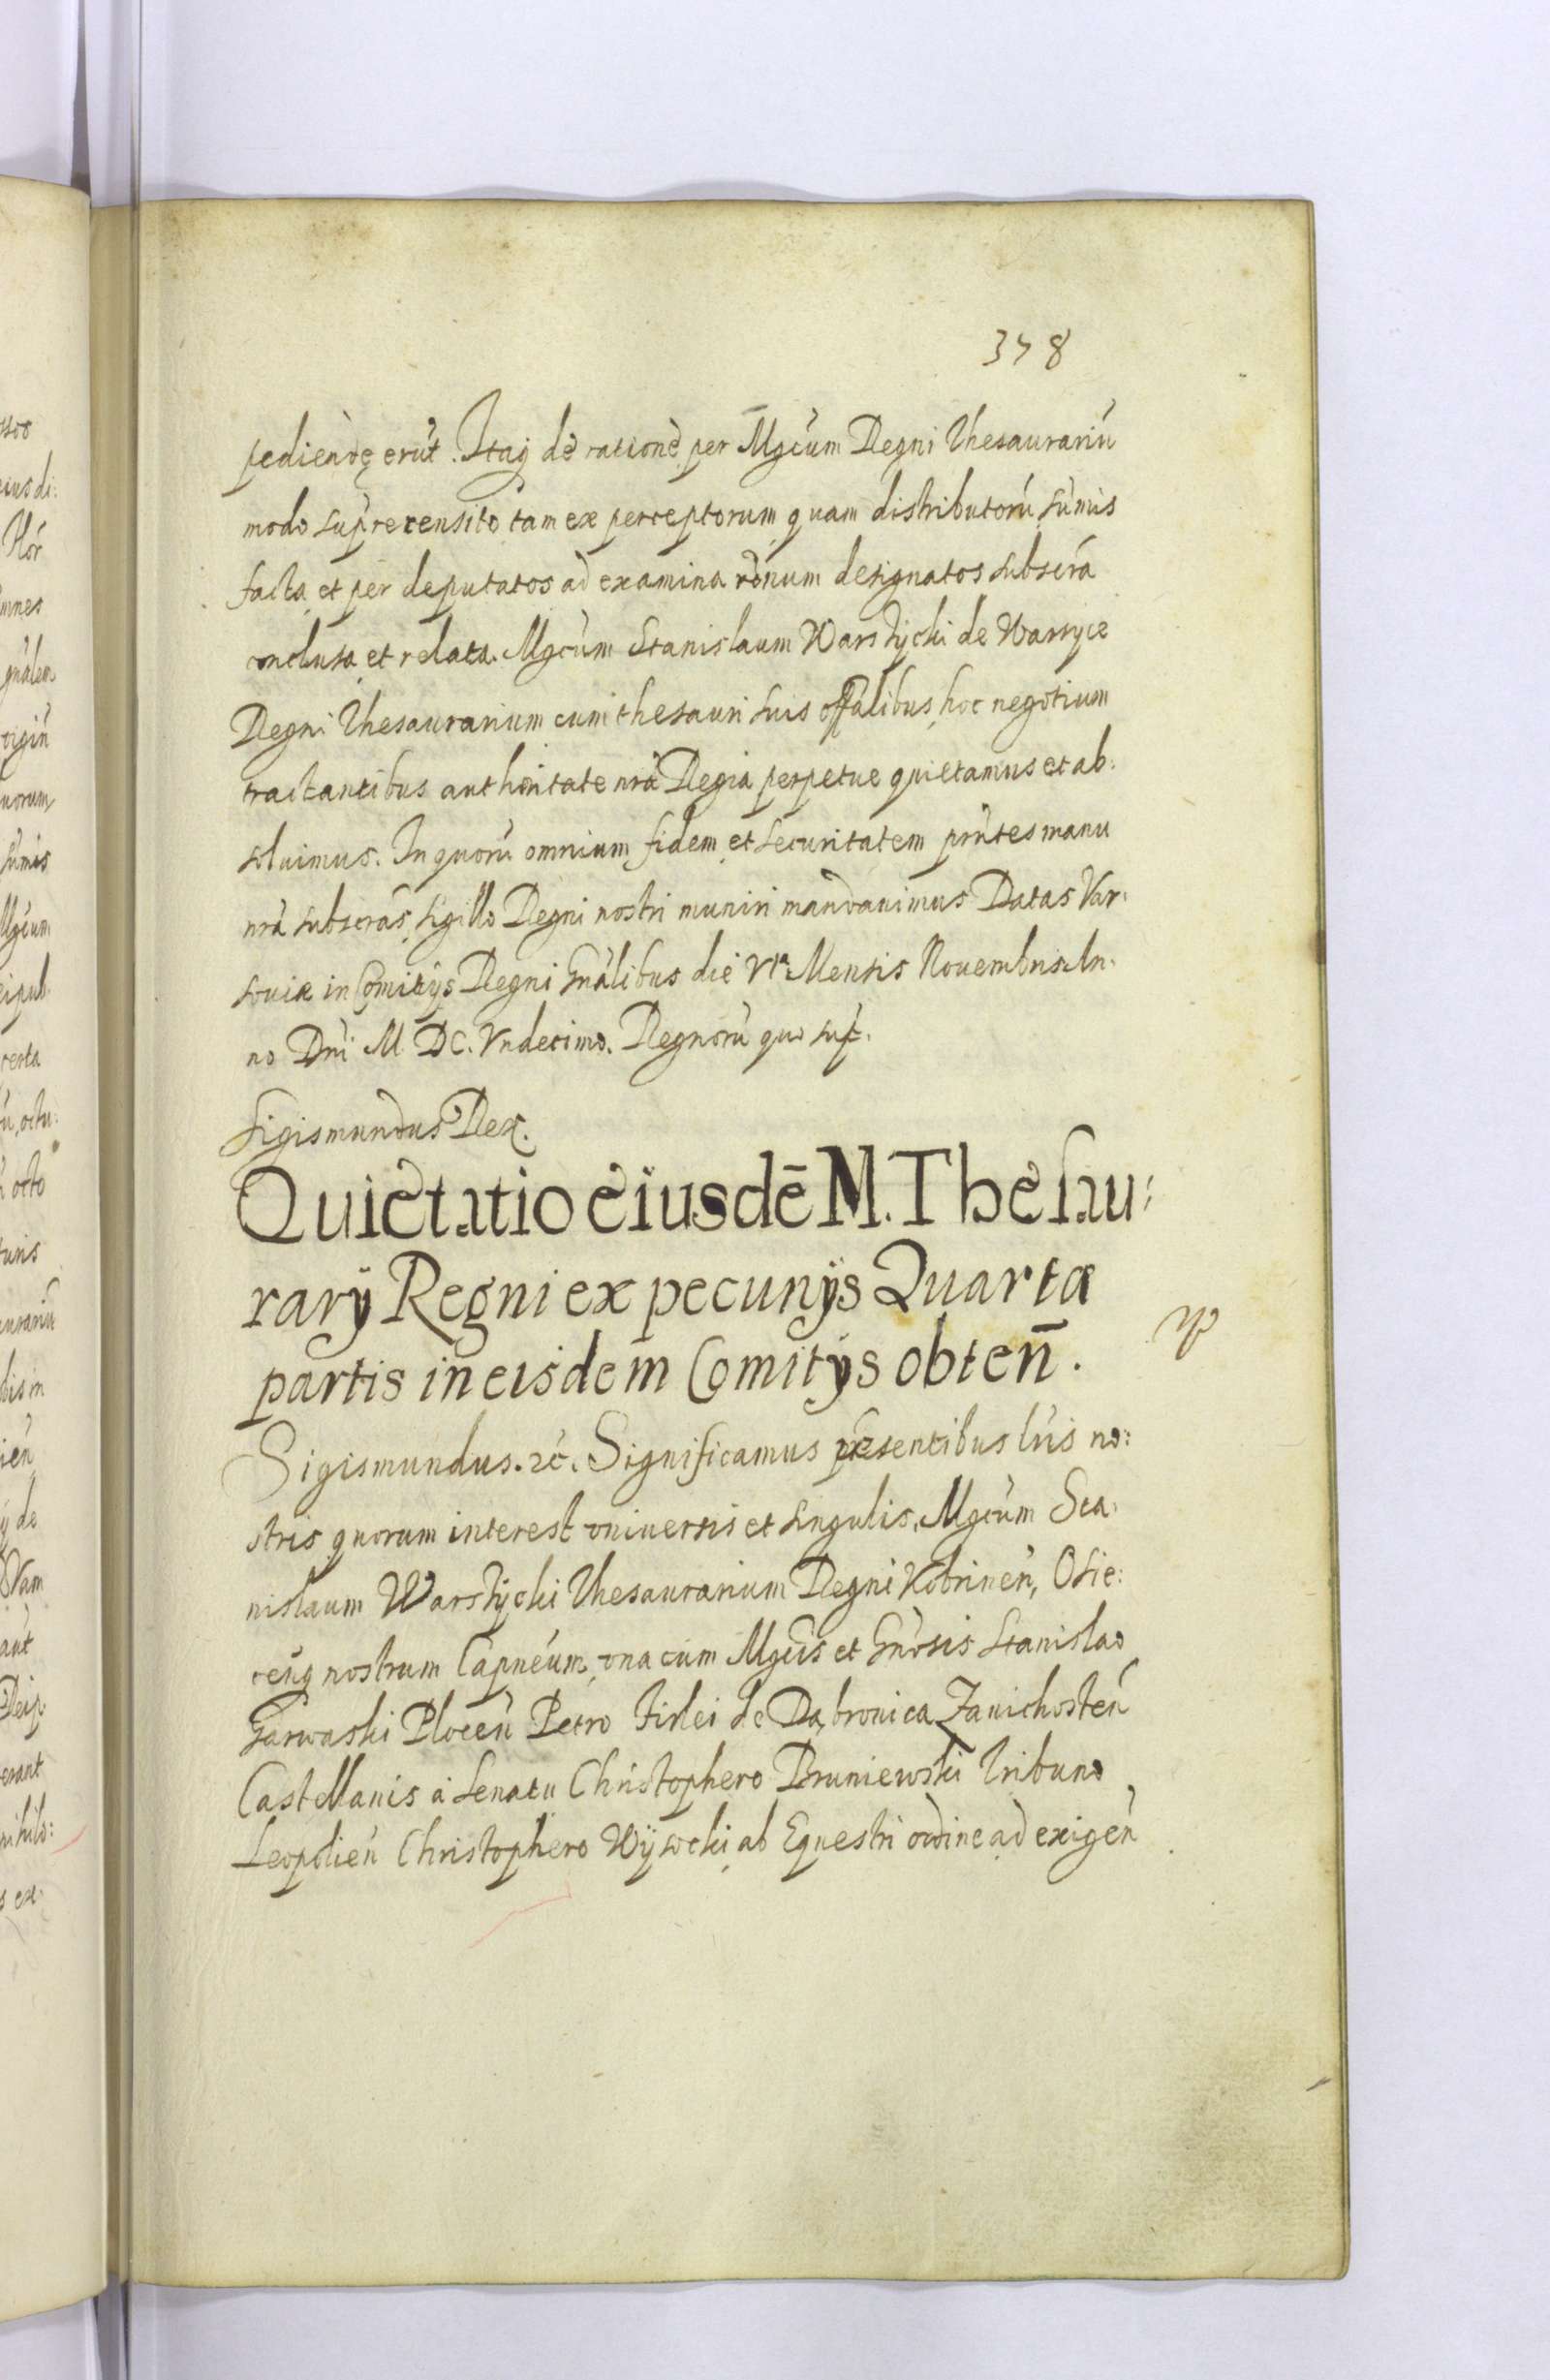 378
pediendę erut. Itaq de ratione per Mgcum Regni Thesaurariu
modo suprrecensito tam ex perceptorum quam distributoru sumis
facta et per deputatos ad examina ronum designatos subscra
conclusa et relata. Mgcum Stanislaum Warszycki de Warsyce
Regni Thesaurarium cum thesauri suis offalibus hoc negotium
tractantibus authoritate nra Regia perpetue quietamus et ab:
soluimus. In quoru omnium fidem et securitatem pntes manu
nra subscras, sigillo Regni nostri muniri mandauimus Datas Var:
souiæ in Comitijs Regni Gnalibus die VIa Mensis Nouembris An:
no Dni M. DC. Vndecimo. Regnoru quo sup.
Sigismundus Rex.
Quietatio eiusdē M. Thesau:
rarij Regni ex pecunijs Quartæ
partis in eisdem Comitijs obten̄.
Sigismundus. etc. Significamus præsentibus lris no:
stris quorum interest vniuersis et singulis, Mgcum Sta:
nislaum Warszycki Thesaurarium Regni Kobrinen, Osie:
cenq nostrum Capneum, vna cum Mgcis et Gnosis Stanislao
Garwaski Plocen Petro Firlei de Dąbrouica Zauichosten
Castellanis à Senatu Christophero Bruniewski Tribuno
Leopolien Christophero Wysocki ab Equestri ordine ad exigen